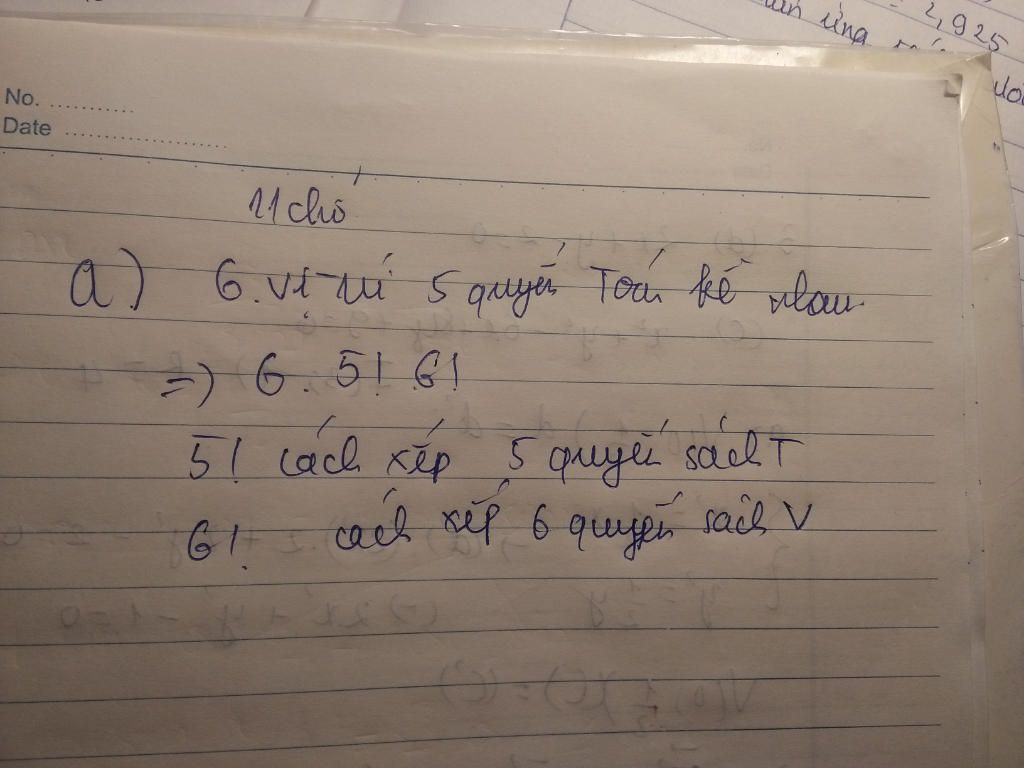 2,925
ứng
No. ............
Date ........................
11 chỗ
a) 6 vị trí 5 quyển Toán kề nhau
=> 6 . 5! 6!
5! cách xếp 5 quyển sách T
6! cách xếp 6 quyển sách V